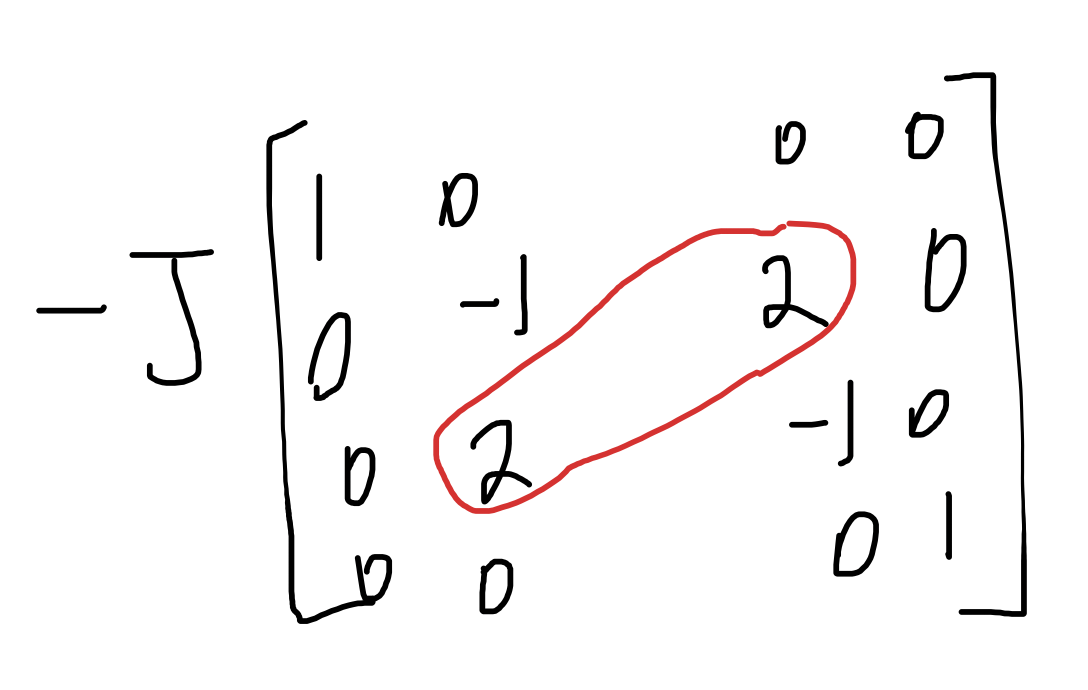 -J [ 1 0 0 0
0 -1 2 0
0 2 -1 0
0 0 0 1 ]